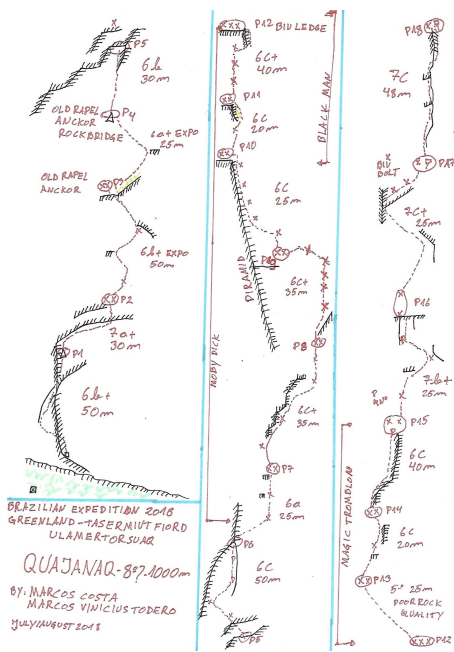 P5
6b
30m
OLD RAPEL
ANCKOR
ROCKBRIDGE
P4
6a+ EXPO
25m
OLD RAPEL
ANCKOR
P3
6b+ EXPO
50m
P2
7a+
30m
P1
6b+
50m
BRAZILIAN EXPEDITION 2018
GREENLAND-TASERMIUT FIORD
ULAMERTORSUAQ
QUAJANAQ-8º? 1000m
BY: MARCOS COSTA
MARCOS VINICIUS TODERO
JULY/AUGUST 2018
P12 BIV LEDGE
6C+
40m
P11
6C
20m
P10
6C
25m
P9
PIRAMID
6C+
35m
P8
6C+
35m
P7
6a
25m
P6
6C
50m
P5
MOBY DICK
BLACK MAN
P18
7C
48m
P17
BIV
BOLT
7C+
25m
P16
7b+
25m
P15
6C
40m
P14
6C
20m
P13
5º 25m
POOR ROCK
QUALITY
P12
MAGIC TROMBLON